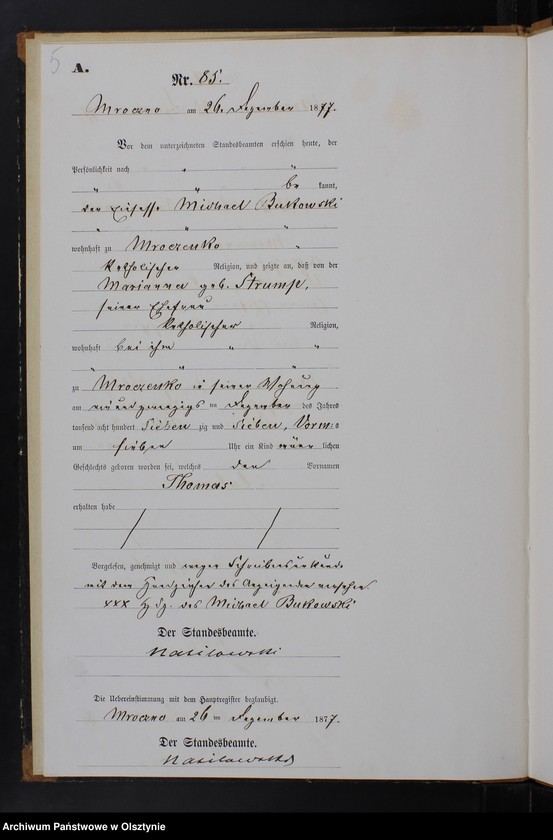 5
A.
Nr. 85.
Mroczno am 26. Dezember 1877.
Vor dem unterzeichneten Standesbeamten erschien heute, der
Persönlichkeit nach
be kannt,
der Michael Bukowski
wohnhaft zu Mroczenko
katholischer Religion, und zeigte an, daß von der
Marianna geb. Strump,
seiner Ehefrau
katholischer Religion,
wohnhaft bei ihm
zu Mroczenko in seiner Wohnung
am einundzwanzigs ten Dezember des Jahres
tausend acht hundert Sieben zig und Sieben, Vorm:
um sieben Uhr ein Kind männ lichen
Geschlechts geboren worden sei, welches den Vornamen
Thomas
erhalten habe
Vorgelesen, genehmigt und wegen Schreibensunkunde
mit dem Handzeichen des Anzeigenden versehen.
xxx Hdz. des Michael Bukowski
Der Standesbeamte.
Nasilowski
Die Uebereinstimmung mit dem Hauptregister beglaubigt.
Mroczno am 26 ten Dezember 1877.
Der Standesbeamte.
Nasilowski
Archiwum Państwowe w Olsztynie